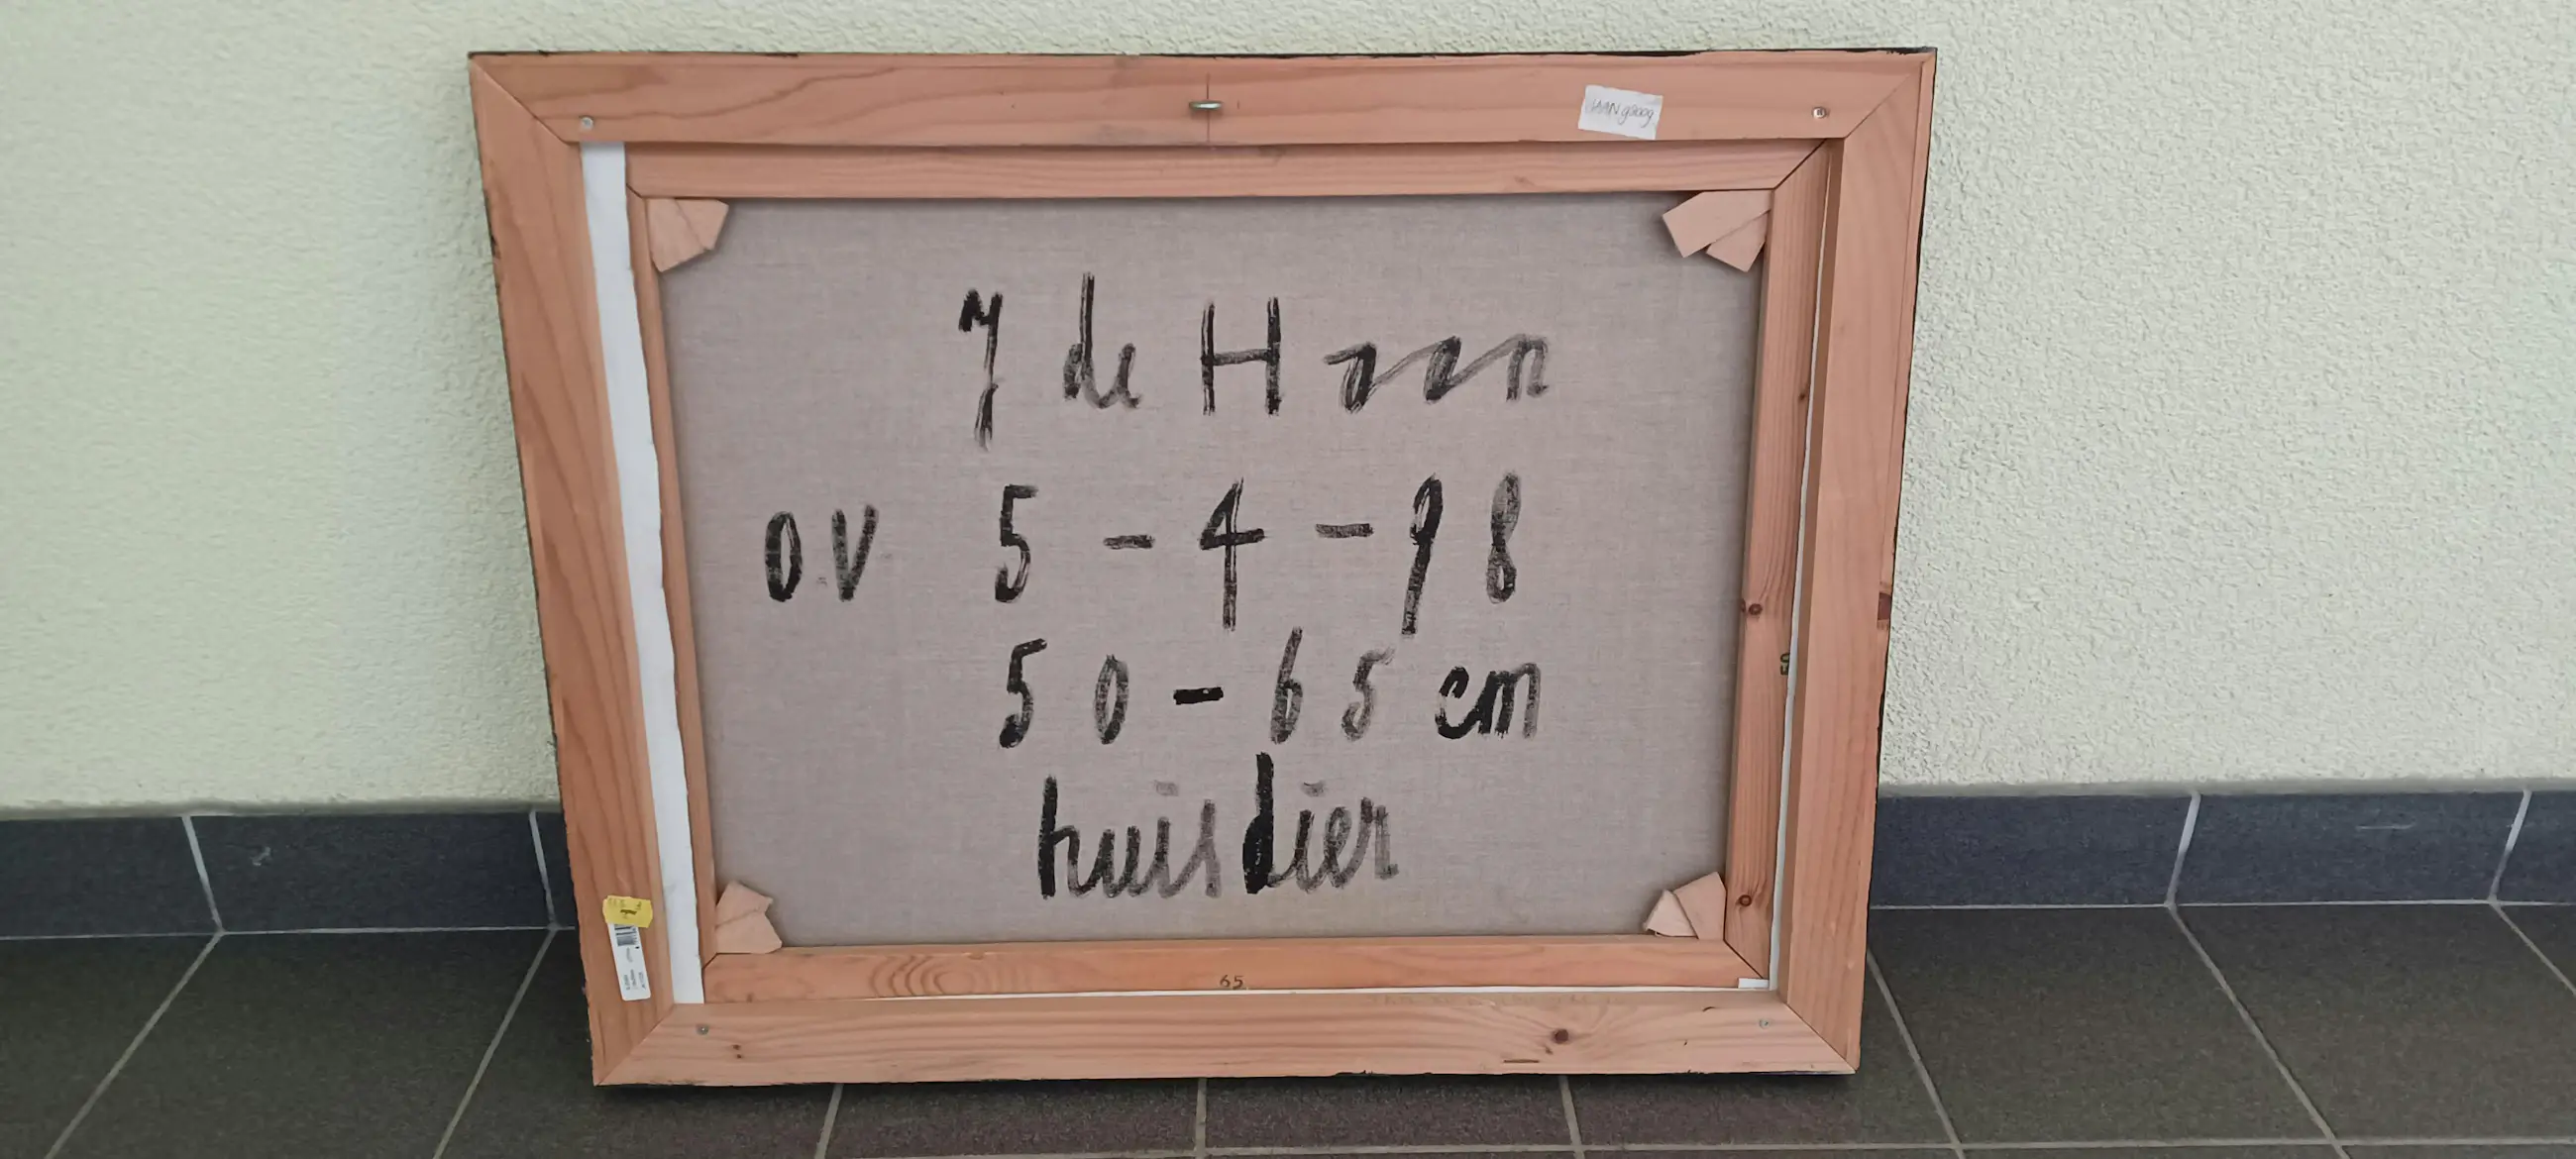 J de Haan
O.V 5-4-98
50-65 cm
huisdier
50
65